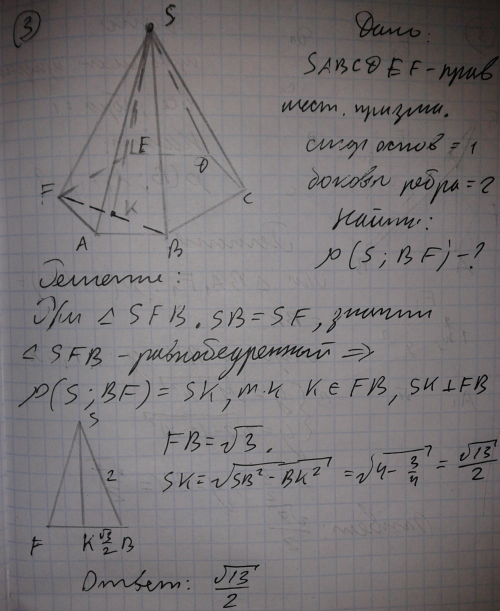 3
S
Дано:
SABCDEF - прав
шест. призма.
стор основ = 1
боковы ребра = 2
Найти:
ρ(S; BF) - ?
E
D
F
C
K
A
B
Решение:
При △ SFB. SB = SF, значит
△ SFB - равнобедренный ⇒
ρ(S; BF) = SK, т.к K ∈ FB, SK ⊥ FB
S
FB = √3.
2
SK = √(SB² - BK²) = √(4 - 3/4) = √13/2
F K √3/2 B
Ответ: √13/2